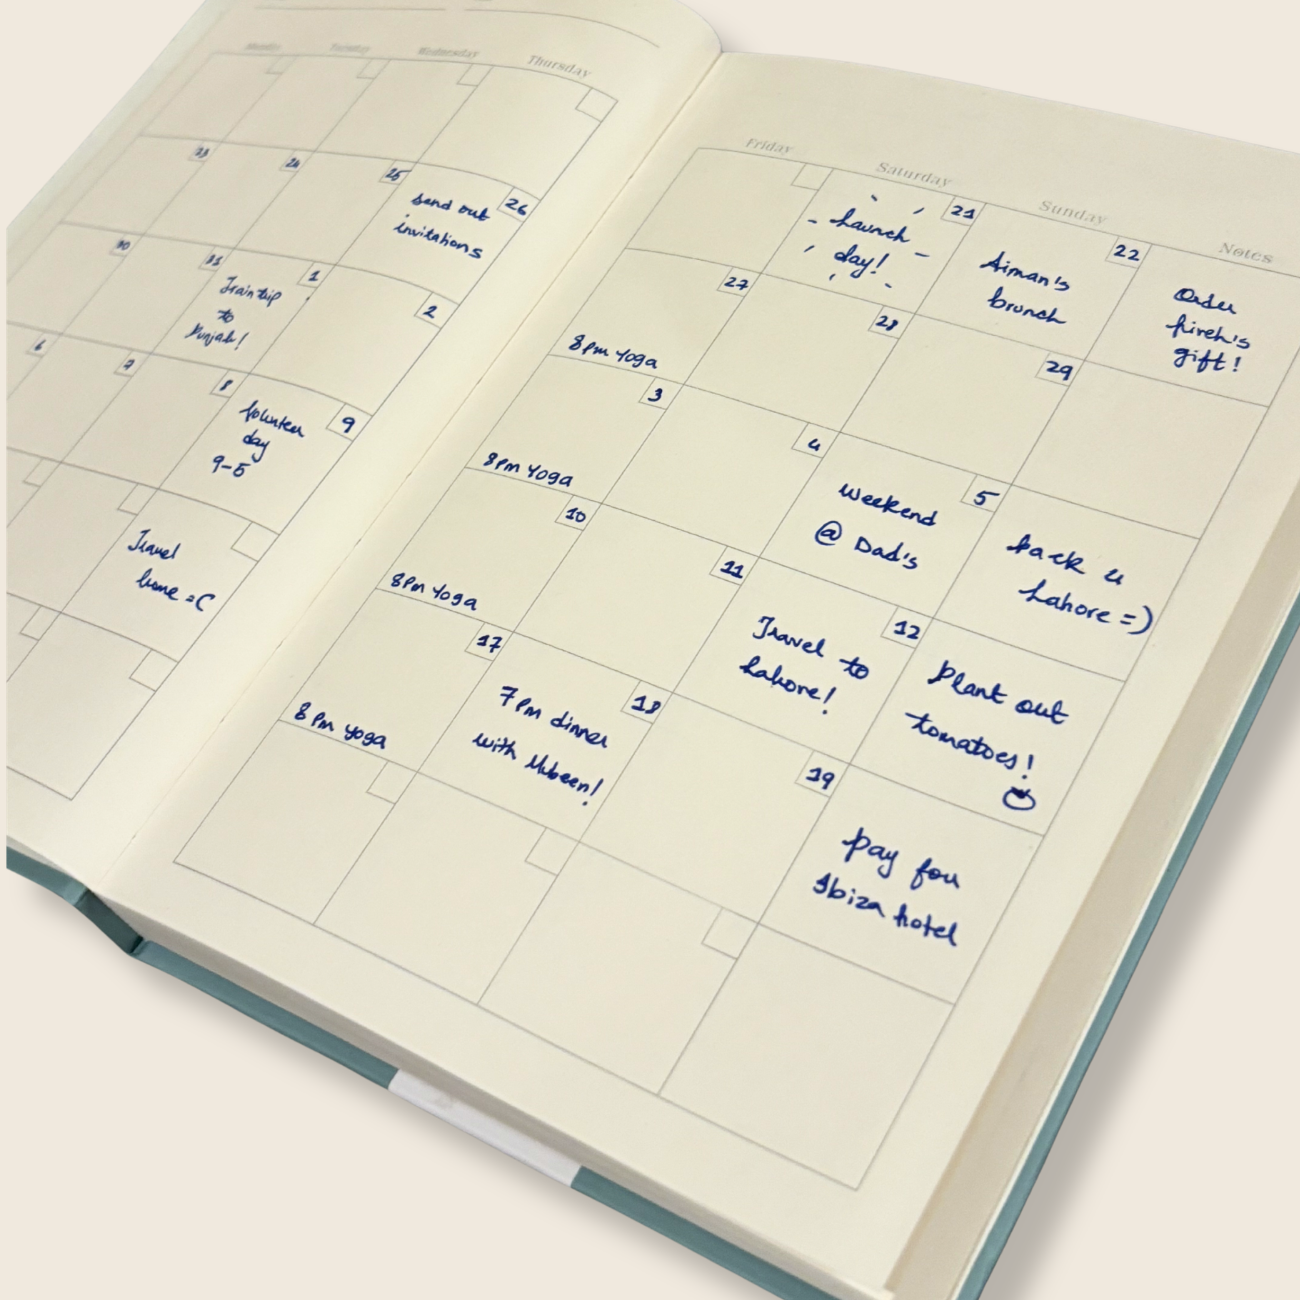 Monday Tuesday Wednesday Thursday
23 24 25 26
Send out
invitations
30 31 1 2
Train trip
to
Punjab!
6 7 8 9
Volunteer
day
9-5
Travel
home =C
Friday Saturday Sunday Notes
21 22
Launch
day!
Aiman's
brunch
Order
gift!
27 28 29
8pm Yoga
3 4 5
8pm Yoga
Weekend
@ Dad's
back u
Lahore =)
10 11 12
8pm Yoga
Travel to
Lahore!
Plant out
tomatoes!
17 18 19
8pm yoga
7pm dinner
with Mubeen!
Pay fou
Ibiza hotel